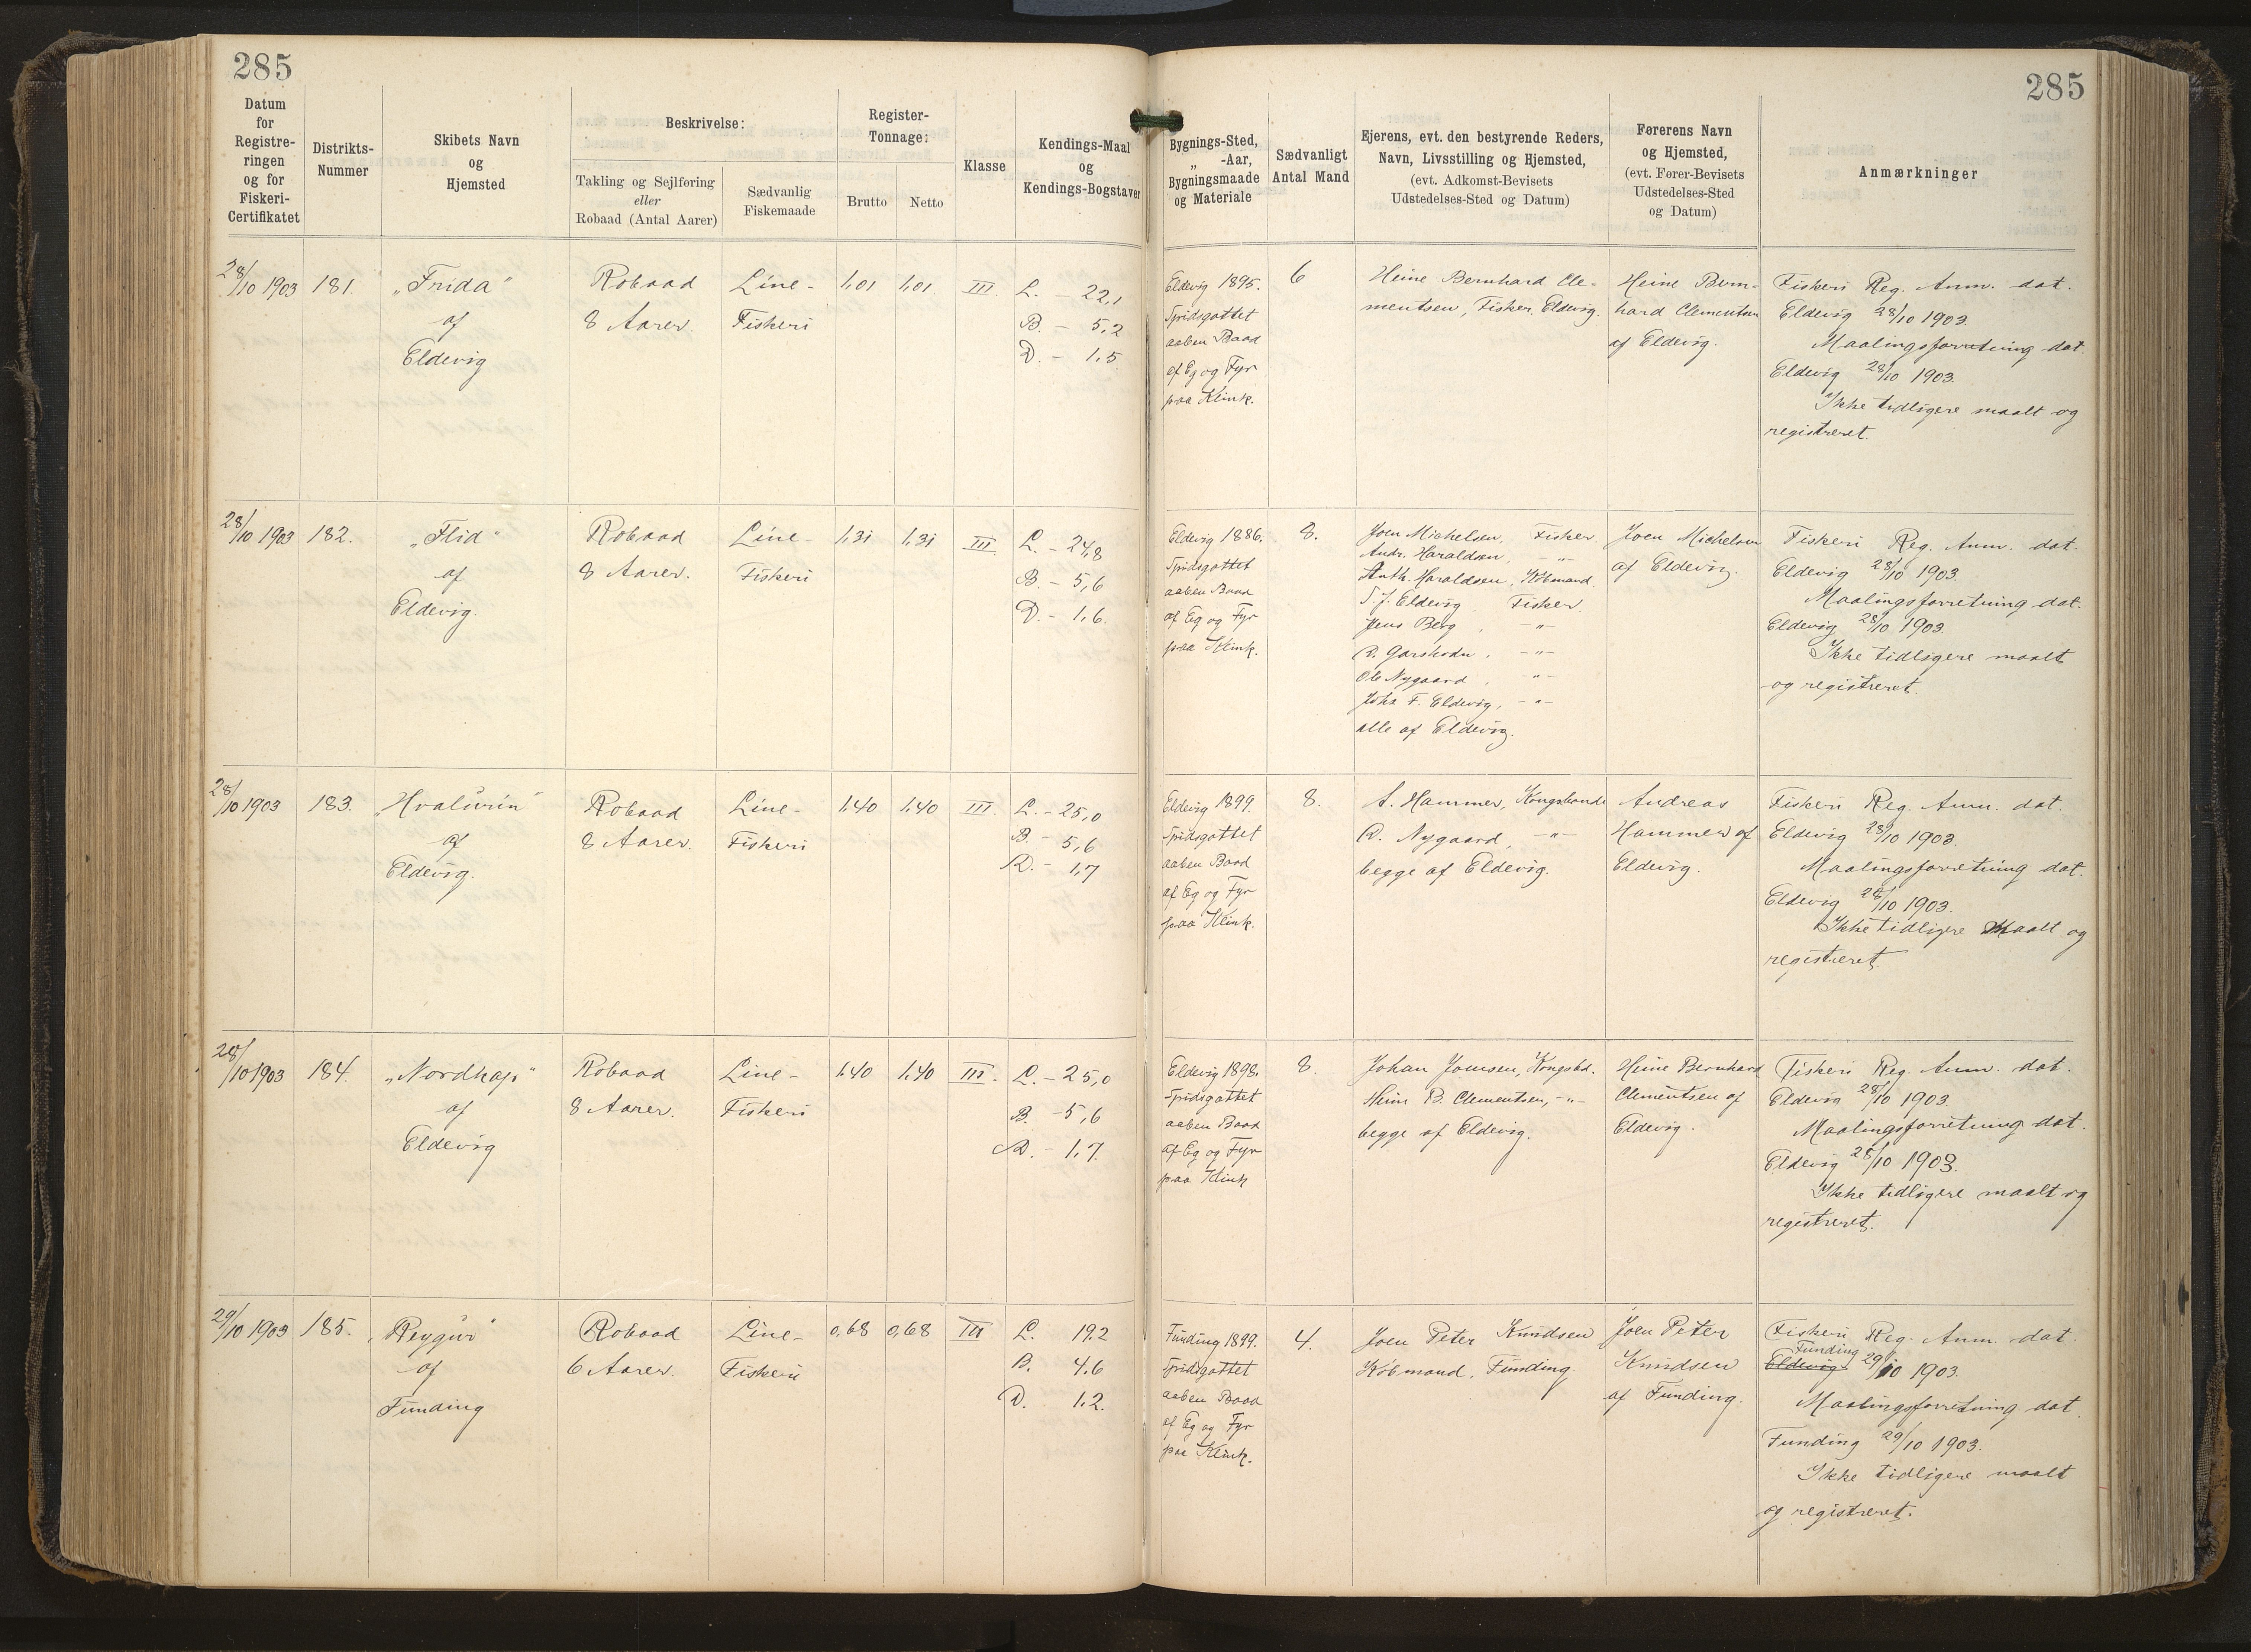 285
285
Datum
for
Registre-
ringen
og for
Fiskeri-
Certifikatet
Distrikts-
Nummer
Skibets Navn
og
Hjemsted
Beskrivelse:
Takling og Sejlføring
eller
Robaad (Antal Aarer)
Sædvanlig
Fiskemaade
Register-
Tonnage:
Brutto
Netto
Klasse
Kendings-Maal
og
Kendings-Bogstaver
Bygnings-Sted,
„ -Aar,
Bygningsmaade
og Materiale
Sædvanligt
Antal Mand
Ejerens, evt. den bestyrende Reders,
Navn, Livsstilling og Hjemsted,
(evt. Adkomst-Bevisets
Udstedelses-Sted og Datum)
Førerens Navn
og Hjemsted,
(evt. Fører-Bevisets
Udstedelses-Sted
og Datum)
Anmærkninger
28/10 1903
181.
„Frida"
af
Eldevig
Robaad
8 Aarer.
Line-
Fiskeri
1,01
1,01
III.
L. - 22,1
B. - 5,2
D. - 1,5
Eldevig 1895.
Spidsgattet
aaben Baad
af Eg og Fyr
paa Klink.
6
Heine Bernhard Cle-
mentsen, Fisker, Eldevig.
Heine Bern-
hard Clementsen
af Eldevig.
Fiskeri Reg. Anm. dat.
Eldevig 28/10 1903.
Maalingsforretning dat.
Eldevig 28/10 1903.
Ikke tidligere maalt og
registreret.
28/10 1903
182.
„Flid"
af
Eldevig.
Robaad
8 Aarer.
Line-
Fiskeri
1,31
1,31
III
L. - 24,8
B. - 5,6
D. - 1,6.
Eldevig 1886.
Spidsgattet
aaben Baad
af Eg og Fyr
paa Klink.
8.
Joen Michelsen, Fisker.
Andr. Haraldsen, -"-
Anth. Haraldsen, Købmand.
J. Eldevig, Fisker.
Jens Berg, -"-
D. Garshodn, -"-
Ole Nygaard, -"-
Johs F. Eldevig, -"-
alle af Eldevig.
Joen Michelsen
af Eldevig.
Fiskeri Reg. Anm. dat.
Eldevig 28/10 1903.
Maalingsforretning dat.
Eldevig 28/10 1903.
Ikke tidligere maalt
og registreret.
28/10 1903
183.
„Hvalurin"
af
Eldevig.
Robaad
8 Aarer.
Line-
Fiskeri
1,40
1,40
III.
L. - 25,0
B. - 5,6
D. - 1,7
Eldevig 1899.
Spidsgattet
aaben Baad
af Eg og Fyr
paa Klink.
8.
A. Hammer, Kongsbonde
D. Nygaard, -"-
begge af Eldevig.
Andreas
Hammer af
Eldevig.
Fiskeri Reg. Anm. dat.
Eldevig 28/10 1903.
Maalingsforretning dat.
Eldevig 28/10 1903.
Ikke tidligere maalt og
registreret
28/10 1903
184.
„Nordkap"
af
Eldevig
Robaad
8 Aarer.
Line-
Fiskeri
1,40
1,40
III.
L. - 25,0
B. - 5,6
D. - 1,7.
Eldevig 1898.
Spidsgattet
aaben Baad
af Eg og Fyr
paa Klink
8.
Johan Joensen, Kongsbd.
Heine B. Clementsen, -"-
begge af Eldevig.
Heine Bernhard
Clementsen af
Eldevig.
Fiskeri Reg. Anm. dat.
Eldevig 28/10 1903
Maalingsforretning dat.
Eldevig 28/10 1903.
Ikke tidligere maalt og
registreret.
29/10 1903
185.
„Roygur"
af
Funding
Robaad
6 Aarer.
Line-
Fiskeri
0,68
0,68
III
L. 19.2
B. 4.6
D. 1.2.
Funding 1899.
Spidsgattet
aaben Baad
af Eg og Fyr
paa Klink.
4.
Joen Peter Knudsen
Købmand, Funding.
Joen Peter
Knudsen
af Funding.
Fiskeri Reg. Anm. dat.
Funding
Eldevig 29/10 1903.
Maalingsforretning dat.
Funding 29/10 1903.
Ikke tidligere maalt
og registreret.